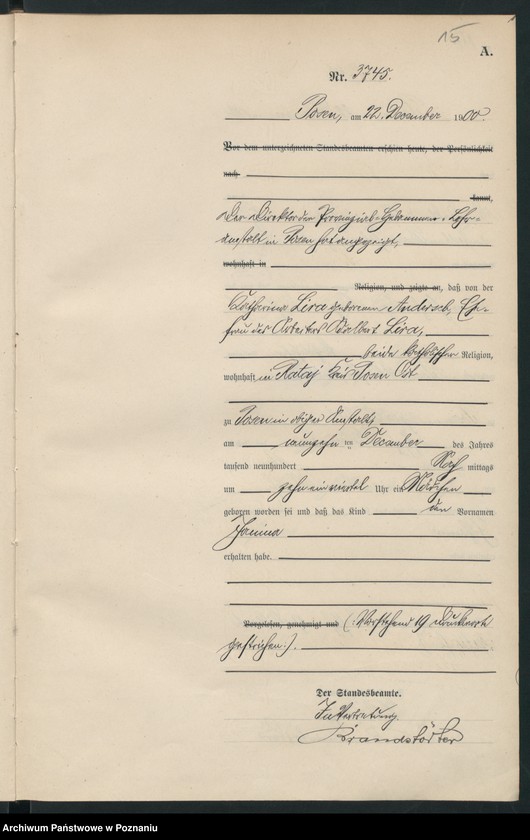 15
A.
Nr. 3745.
Posen, am 22. December 1900.
Vor dem unterzeichneten Standesbeamten erschien heute, der Persönlichkeit
nach
kannt,
Der Direktor der Provinzial-Hebammen-Lehr-
anstalt in Posen hat angezeigt,
wohnhaft in
Religion, und zeigte an, daß von der
Catharina Lira geborenen Andersch, Ehe-
frau des Arbeiters Adalbert Lira,
beide katholischer Religion,
wohnhaft in Rataj Kreis Posen Ost
zu Posen in obiger Anstalt,
am neunzehnten December des Jahres
tausend neunhundert Nachmittags
um zehneinviertel Uhr ein Mädchen
geboren worden sei und daß das Kind den Vornamen
Janina
erhalten habe.
Vorgelesen, genehmigt und (: Vorstehend 19 Druckworte
gestrichen :).
Der Standesbeamte.
In Vertretung.
Brandstäter
Archiwum Państwowe w Poznaniu